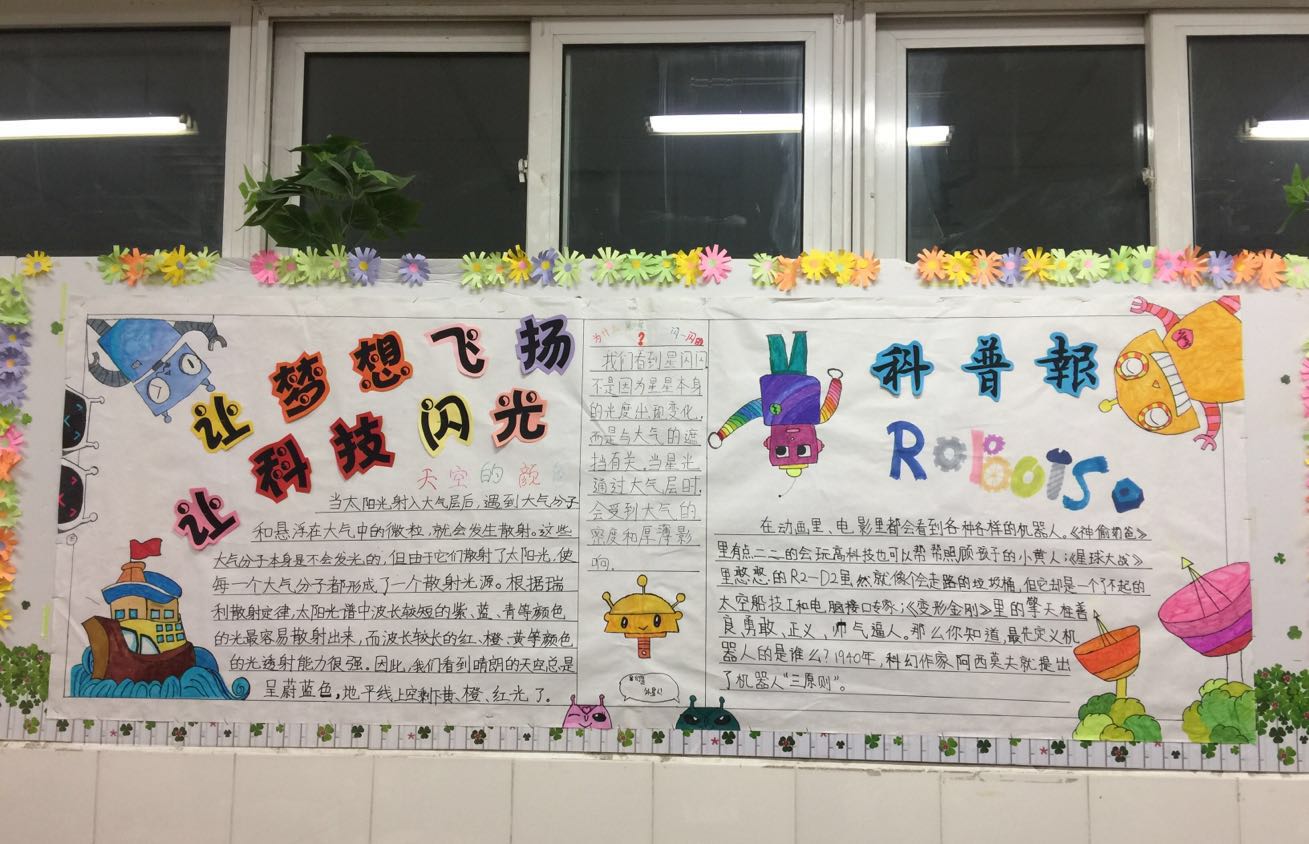 让梦想飞扬
让科技闪光
天空的颜色
当太阳光射入大气层后，遇到大气分子
和悬浮在大气中的微粒，就会发生散射。这些
大气分子本身是不会发光的，但由于它们散射了太阳光，使
每一个大气分子都形成了一个散射光源。根据瑞
利散射定律，太阳光谱中波长较短的紫、蓝、青等颜色
的光最容易散射出来，而波长较长的红、橙、黄等颜色
的光透射能力很强。因此，我们看到晴朗的天空总是
呈蔚蓝色，地平线上空剩下黄、橙、红光了。
为什么 闪一闪的
?
我们看到星闪闪，
不是因为星星本身
的光度出面变化，
而是与大气的遮
挡有关。当星光
通过大气层时，
会受到大气的
密度和厚薄影
响。
科普報
Robots
在动画里、电影里都会看到各种各样的机器人。《神偷奶爸》
里有点二二的会玩高科技也可以帮帮照顾孩子的小黄人；《星球大战》
里憨憨的R2-D2虽然就像个会走路的垃圾桶，但它却是一个了不起的
太空船技工和电脑接口专家；《变形金刚》里的擎天柱善
良勇敢、正义、帅气逼人。那么你知道，最先定义机
器人的是谁么？1940年，科幻作家阿西莫夫就提出
了机器人“三原则”。